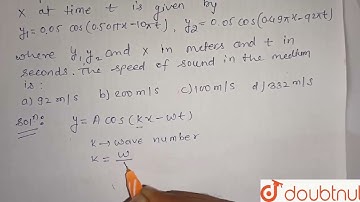 x at time t is given by
y₁=0.05 cos(0.50πx-10πt), y₂=0.05 cos(0.49πx-92πt)
where y₁,y₂ and x in meters and t in
seconds. The speed of sound in the medium
is :
a) 92 m/s b) 200 m/s c) 100 m/s d) 332 m/s
soln: y = A cos(kx-wt)
k → wave number
k = w
doubtnut